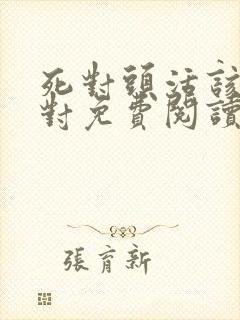 死對頭活該
對免費閱讀
張育新